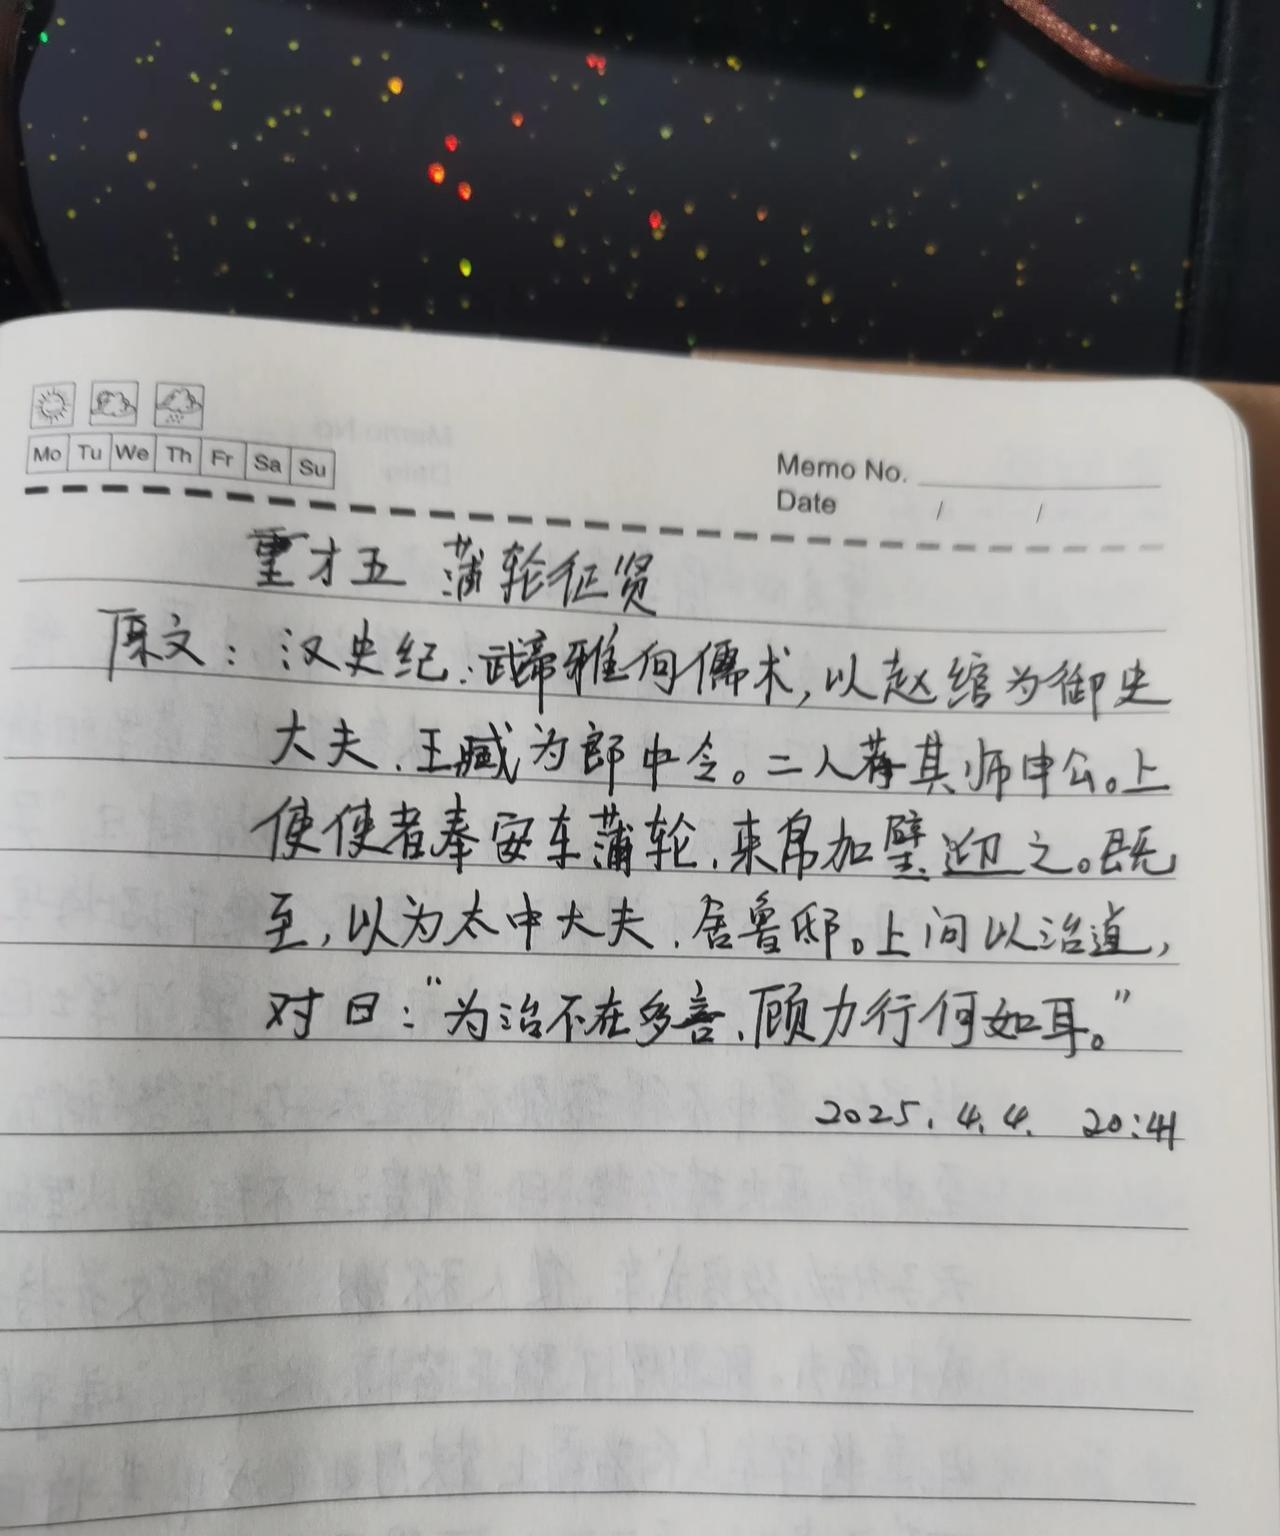 Mo Tu We Th Fr Sa Su
Memo No.
Date / /
重才五 蒲轮征贤
原文：汉史纪：武帝雅向儒术，以赵绾为御史
大夫，王臧为郎中令。二人荐其师申公。上
使使者奉安车蒲轮，束帛加璧迎之。既
至，以为太中大夫，舍鲁邸。上问以治道，
对曰：“为治不在多言，顾力行何如耳。”
2025.4.4. 20:41